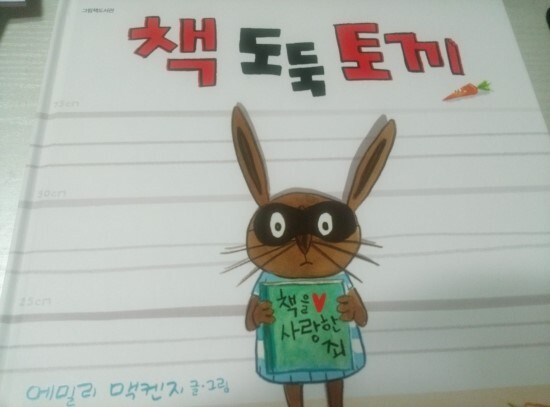 그림책도서관
책 도둑 토끼
75cm
50cm
25cm
책을
사랑한
죄
에밀리 맥켄지 글·그림